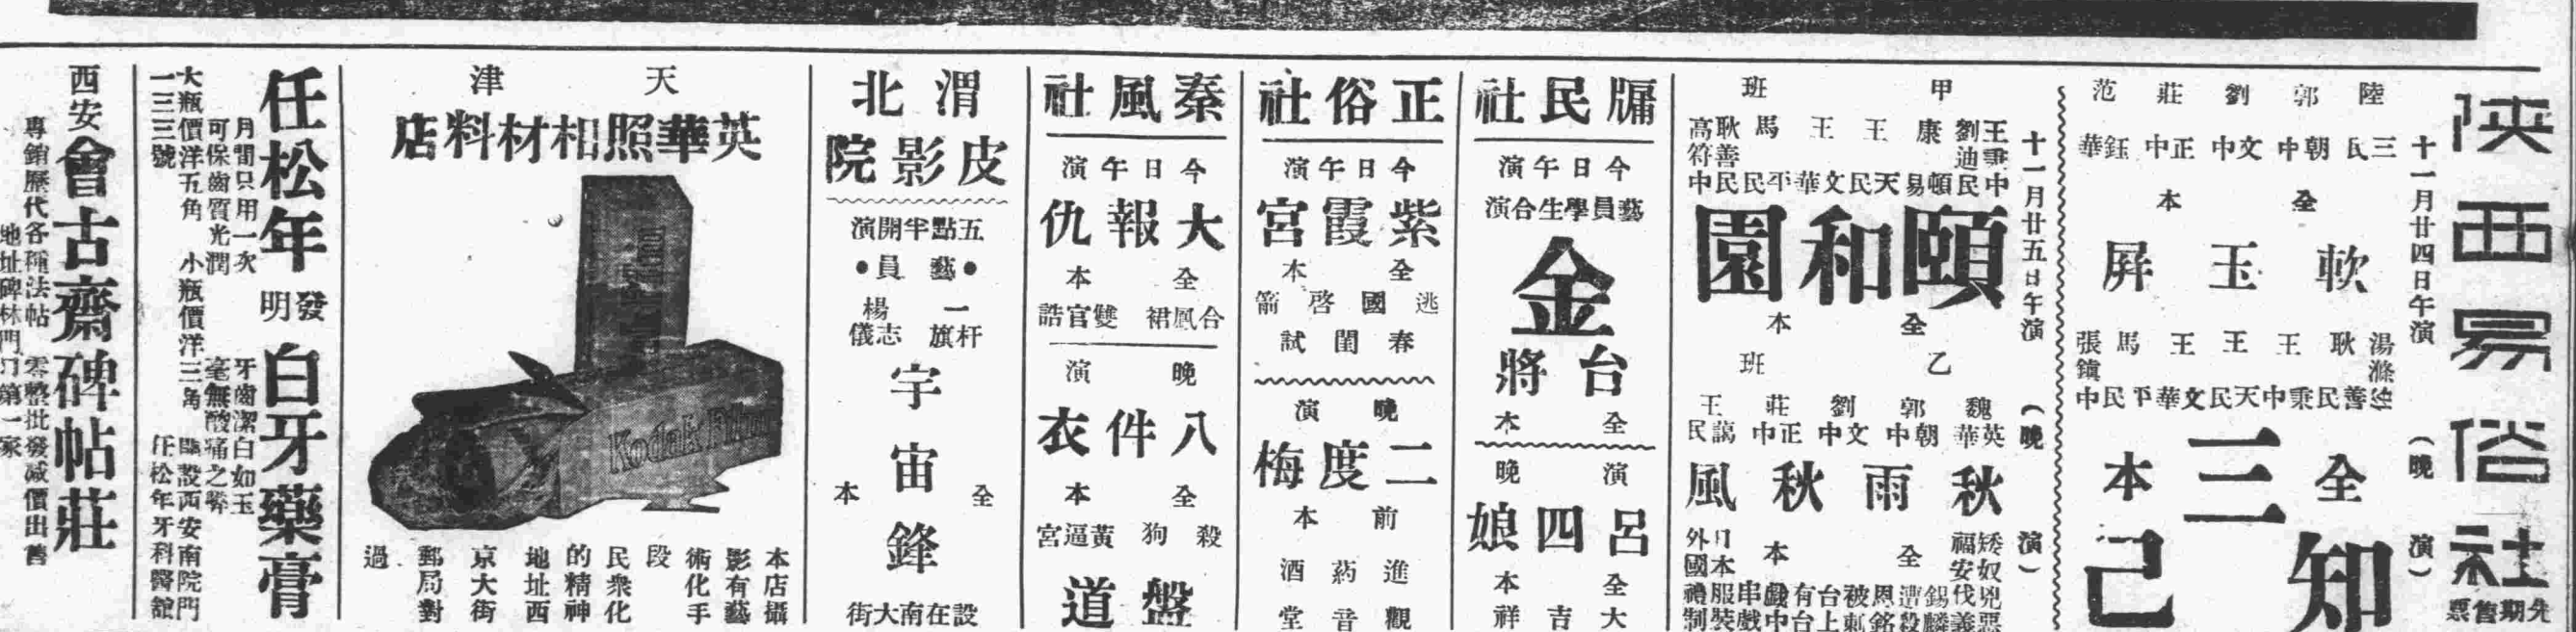 陝西易俗社
先期售票
十一月廿四日午演
陸三民 郭朝中 劉文中 莊正中 范鈺華
全本
軟玉屏
(晚演)
湯滌 耿善民 王秉中 王天民 王文華 馬平民 張鎮中
全本
三知己
十一月廿五日午演
甲班
王秉中 劉迪民 康頓易 王天民 王文華 馬平民 耿善民 高符中
頤和園
全本
(晚演)
乙班
魏英華 郭朝中 劉文中 莊正中 王藹民
秋雨秋風
全本
牖民社
今日午演
藝員學生合演
金台將
全本
晚演
呂四娘
全本
大吉祥
正俗社
今日午演
紫霞宮
全本
逃國 啓箭
春閨試
晚演
二度梅
前本
進葯酒
觀音堂
秦風社
今日午演
大報仇
全本
合鳳裙 雙官誥
晚演
八件衣
全本
殺狗 黃逼宮
盤道
渭北
皮影院
五點半開演
●藝員●
一杆旗 楊志儀
宇宙鋒
全本
設在南大街
天津
英華照相材料店
Kodak Film
本店攝
影有藝
術化手
段
民衆化
的精神
地址西
京大街
郵局對
過
任松年發明白牙藥膏
月間只用一次 牙齒潔白如玉
可保齒質光潤 毫無酸痛之弊
大瓶價洋五角 小瓶價洋三角 開設西安南院門
一三三號 任松年牙科醫館
西安會古齋碑帖莊
專銷歷代各種法帖 零整批發減價出售
地址碑林門口第一家